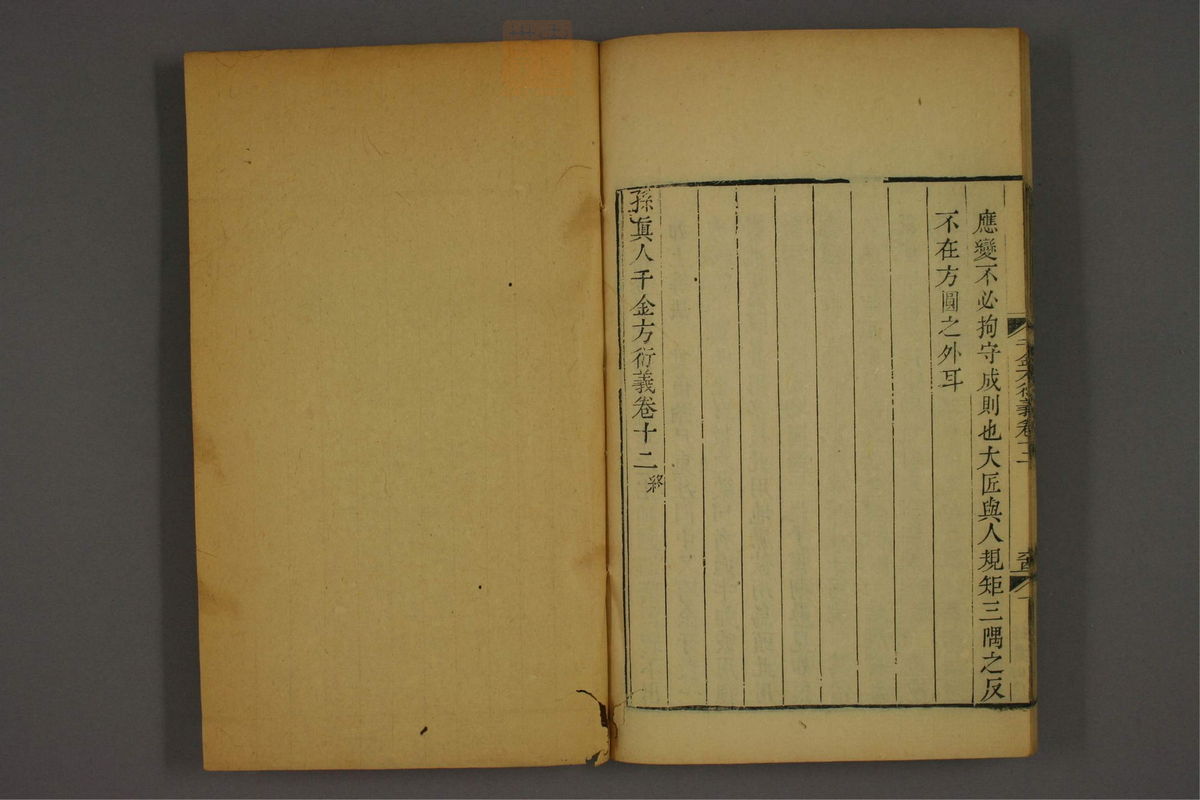 應變不必拘守成則也大匠與人規矩三隅之反
不在方圓之外耳
孫眞人千金方衍義卷十二終
千金方衍義卷十二